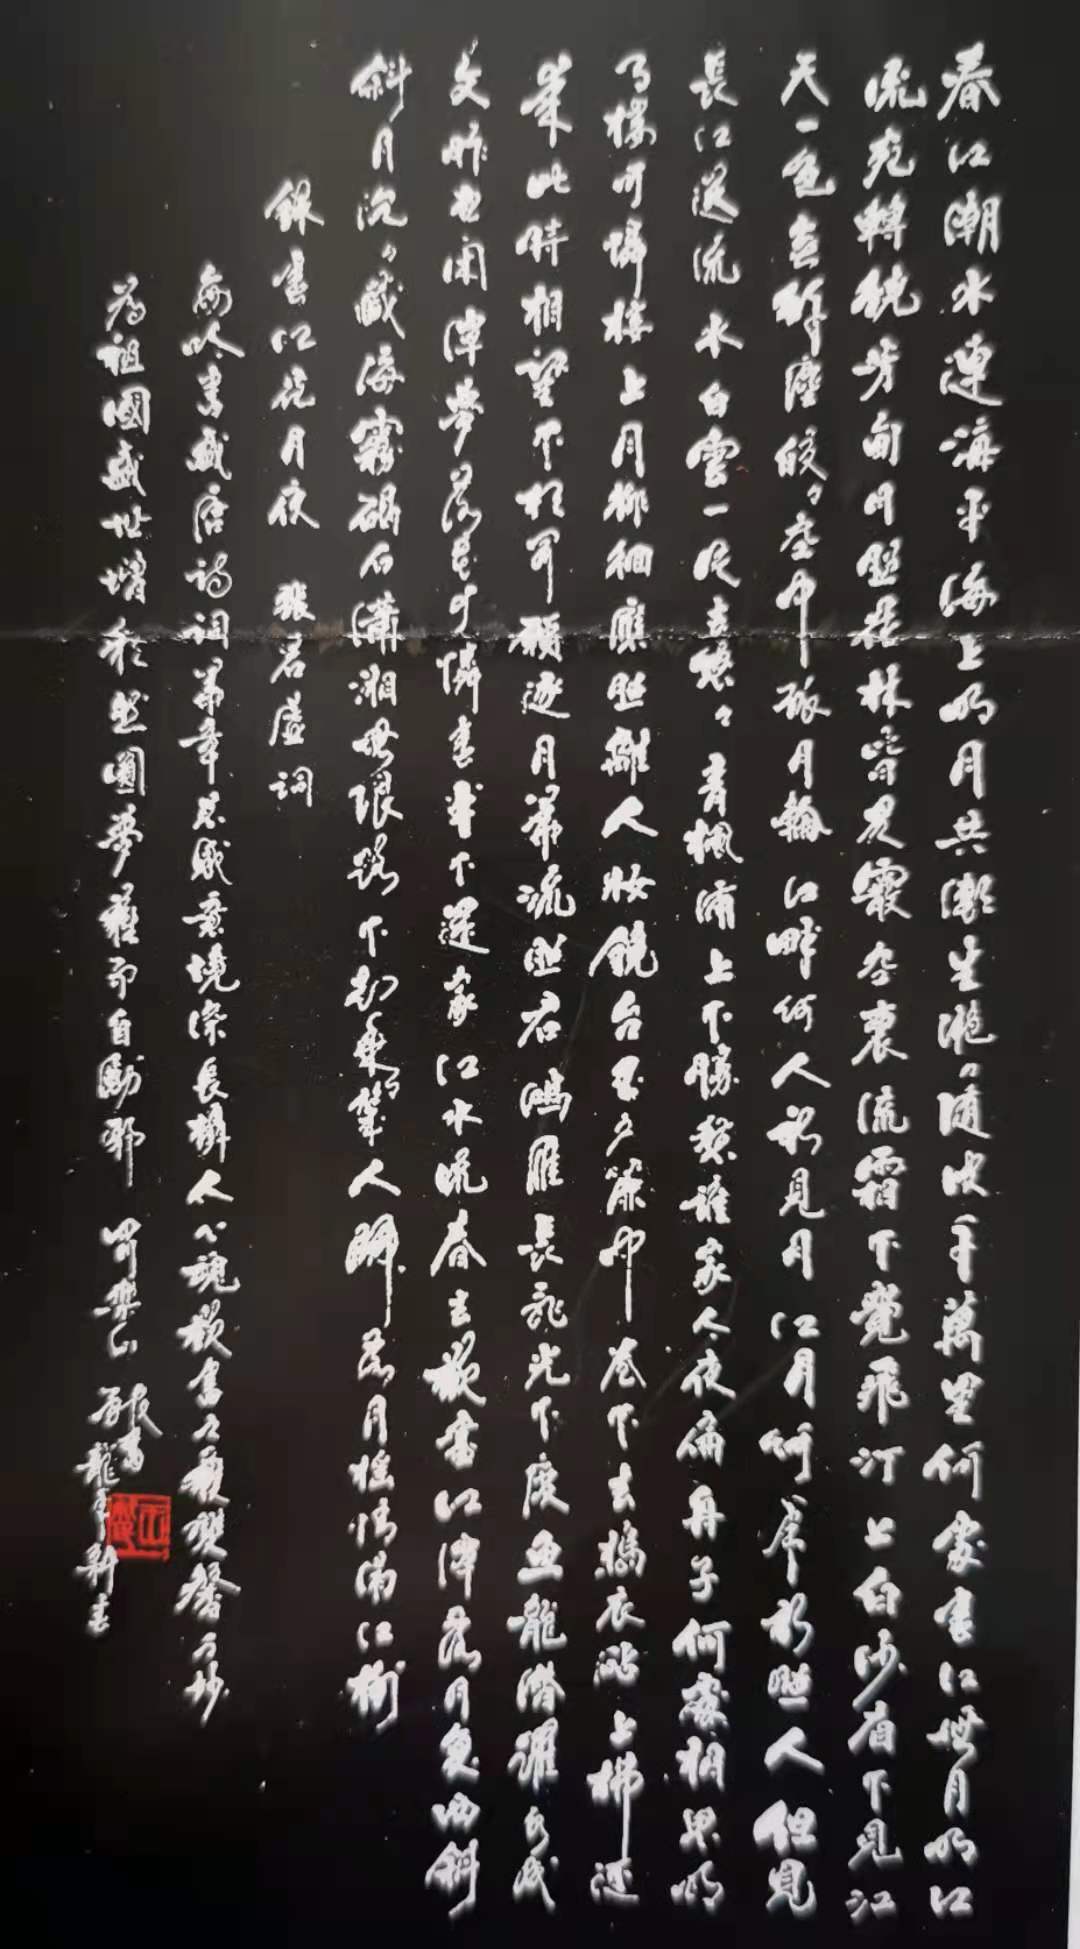 春江潮水連海平海上明月共潮生灔〻隨波千萬里何處春江無月明江
流宛轉繞芳甸月照花林皆似霰空裏流霜不覺飛汀上白沙看不見江
天一色無纖塵皎〻空中孤月輪江畔何人初見月江月何年初照人但見
長江送流水白雲一片去悠〻青楓浦上不勝愁誰家今夜扁舟子何處相思明
月樓可憐樓上月徘徊應照離人妝鏡台玉户簾中卷不去搗衣砧上拂還
來此時相望不相聞願逐月華流照君鴻雁長飛光不度魚龍潛躍水成
文昨夜閑潭夢落花可憐春半不還家江水流春去欲盡江潭落月復西斜
斜月沉〻藏海霧碣石瀟湘無限路不知乘月幾人歸落月搖情滿江樹
録春江花月夜 張若虛詞
每吟書盛唐詩詞華章总感意境深長攝人心魂欲書之
為祖國盛世增彩圓夢而自勵耶